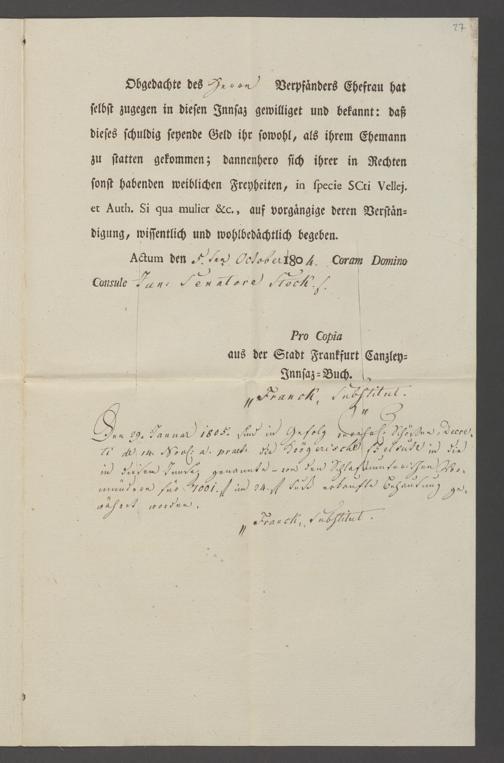 27
Obgedachte des Herrn Verpfänders Ehefrau hat
selbst zugegen in diesen Innsaz gewilliget und bekannt: daß
dieses schuldig seyende Geld ihr sowohl, als ihrem Ehemann
zu statten gekommen; dannenhero sich ihrer in Rechten
sonst habenden weiblichen Freyheiten, in specie SCti Vellej.
et Auth. Si qua mulier &c., auf vorgängige deren Verstän-
digung, wissentlich und wohlbedächtlich begeben.
Actum den 5. ten October 1804. Coram Domino
Consule Jun: Senatore Stock.
Pro Copia
aus der Stadt Frankfurt Canzley-
Innsaz-Buch.
Franck, Substitut.
Den 29. Januar 1805. sind in Gefolg Schöffen Decre-
ti de 14. Nov: a. die Börgerische Eheleute in die
in diesem Innsaz genannte - von den Vor-
mündern für 7001. f im 24. f Fuß erkaufte Behausung ge-
währet worden.
Franck, Substitut.